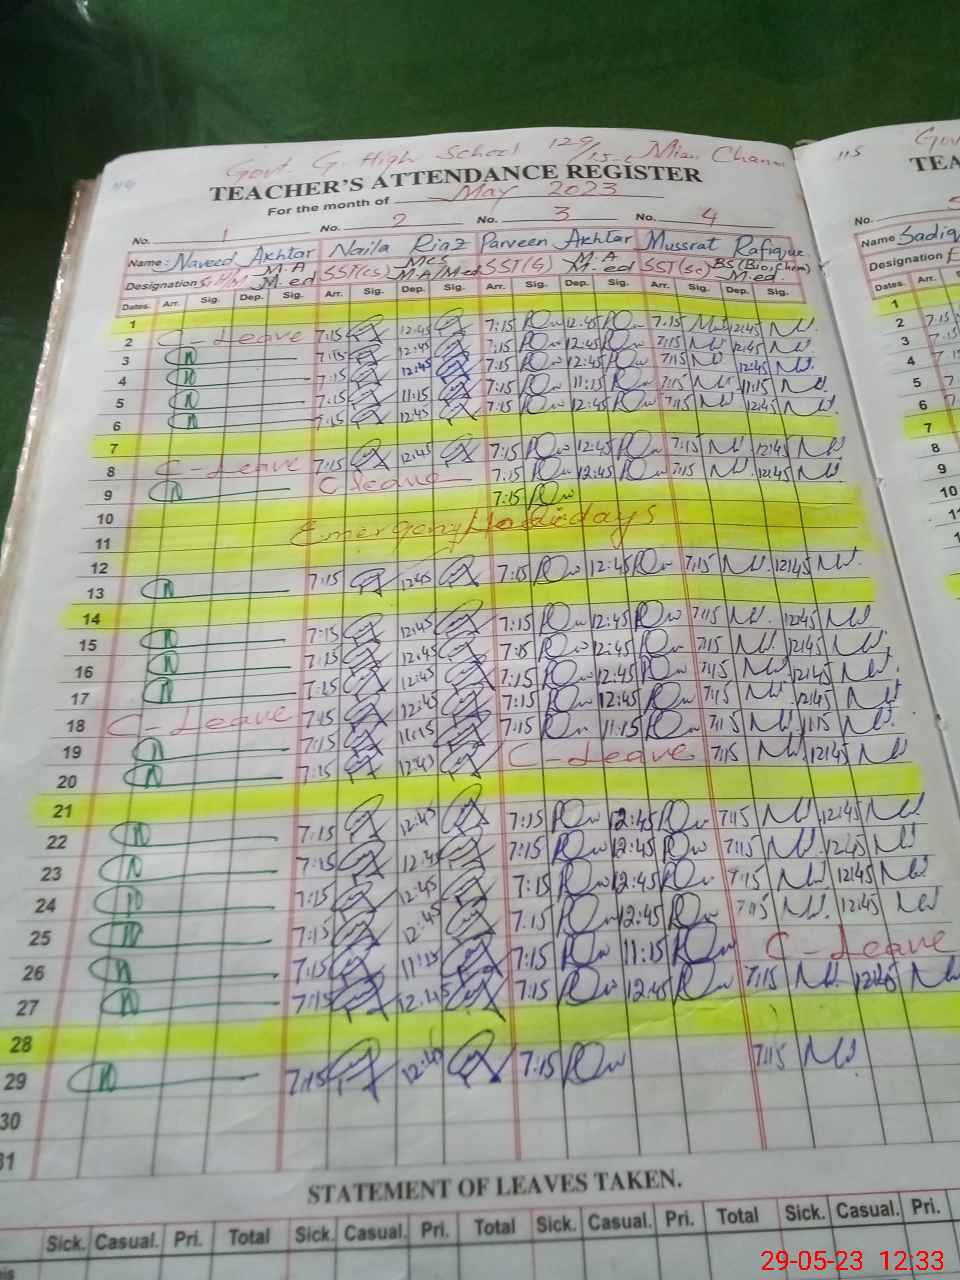 Govt. G. High School 129/15-L Mian Chann
TEACHER'S ATTENDANCE REGISTER
For the month of May 2023
No. 1 No. 2 No. 3 No. 4
Name: Naveed Akhtar Naila Riaz Parveen Akhtar Mussrat Rafique
Designation M.A M.ed SST(CS) MCS M.A/M.ed SST(G) M.A M.ed SST(Sc) BS(Bio,Chem) M.ed
Dates. Arr. Sig. Dep. Sig. Arr. Sig. Dep. Sig. Arr. Sig. Dep. Sig. Arr. Sig. Dep. Sig.
1
2 C-Leave 7:15 12:45 7:15 12:45 7:15 12:45
3 7:15 12:45 7:15 12:45 7:15 12:45
4 7:15 12:45 7:15 12:45 7:15 12:45
5 7:15 11:15 7:15 11:15 7:15 11:15
6 7:15 12:45 7:15 12:45 7:15 12:45
7
8 C-Leave 7:15 12:45 7:15 12:45 7:15 12:45
9 C leave 7:15 12:45 7:15 12:45
10 7:15
11 Emergency Holidays
12
13 7:15 12:45 7:15 12:45 7:15 12:45
14
15 7:15 12:45 7:15 12:45 7:15 12:45
16 7:15 12:45 7:15 12:45 7:15 12:45
17 7:15 12:45 7:15 12:45 7:15 12:45
18 C-Leave 7:15 12:45 7:15 12:45 7:15 12:45
19 7:15 11:15 7:15 11:15 7:15 11:15
20 7:15 12:45 C-Leave 7:15 12:45
21
22 7:15 12:45 7:15 12:45 7:15 12:45
23 7:15 12:45 7:15 12:45 7:15 12:45
24 7:15 12:45 7:15 12:45 7:15 12:45
25 7:15 12:45 7:15 12:45 7:15 12:45
26 7:15 11:15 7:15 11:15 C-Leave
27 7:15 12:45 7:15 12:45 7:15 12:45
28
29 7:15 12:45 7:15 7:15
30
31
STATEMENT OF LEAVES TAKEN.
Sick. Casual. Pri. Total Sick. Casual. Pri. Total Sick. Casual. Pri. Total Sick. Casual. Pri.
115 Gov
TEA
No.
Name Sadiq
Designation
Dates. Arr.
1
2 7:15
3
4
5
6
7
8
9
10
11
29-05-23 12:33